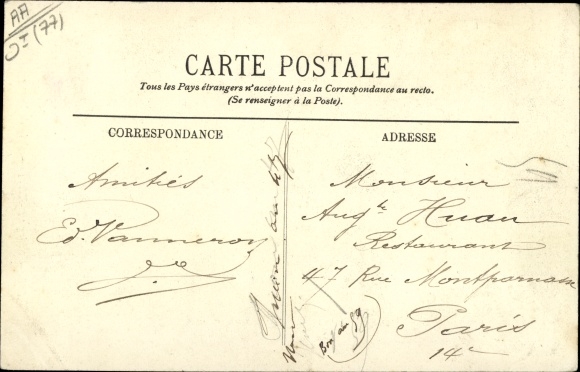 AA
(77)
CARTE POSTALE
Tous les Pays étrangers n'acceptent pas la Correspondance au recto.
(Se renseigner à la Poste).
CORRESPONDANCE
ADRESSE
Amitiés
Ed. Vanneroy
Monsieur
Aug.te Huan
Restaurant
47 Rue Montparnasse
Paris
14e
Huan au 47
Bon au 59